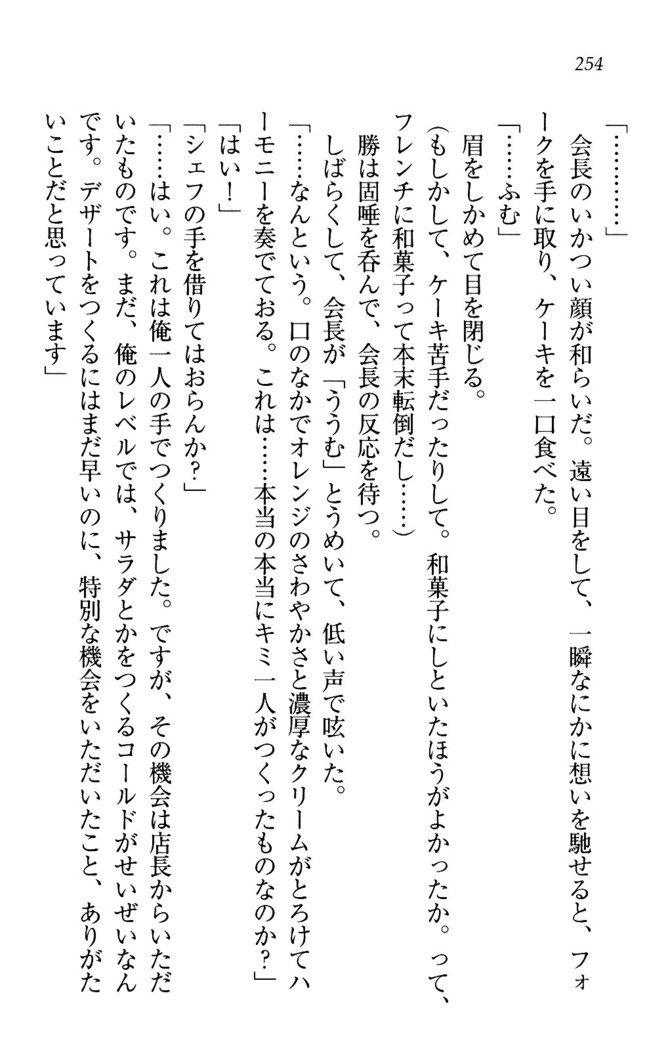 254
「…………」
　会長のいかつい顔が和らいだ。遠い目をして、一瞬なにかに想いを馳せると、フォ
ークを手に取り、ケーキを一口食べた。
「……ふむ」
　眉をしかめて目を閉じる。
（もしかして、ケーキ苦手だったりして。和菓子にしといたほうがよかったか。って、
フレンチに和菓子って本末転倒だし……）
　勝は固唾を呑んで、会長の反応を待つ。
　しばらくして、会長が「ううむ」とうめいて、低い声で呟いた。
「……なんという。口のなかでオレンジのさわやかさと濃厚なクリームがとろけてハ
ーモニーを奏でておる。これは……本当の本当にキミ一人がつくったものなのか？」
「はい！」
「シェフの手を借りてはおらんか？」
「……はい。これは俺一人の手でつくりました。ですが、その機会は店長からいただ
いたものです。まだ、俺のレベルでは、サラダとかをつくるコールドがせいぜいなん
です。デザートをつくるにはまだ早いのに、特別な機会をいただいたこと、ありがた
いことだと思っています」